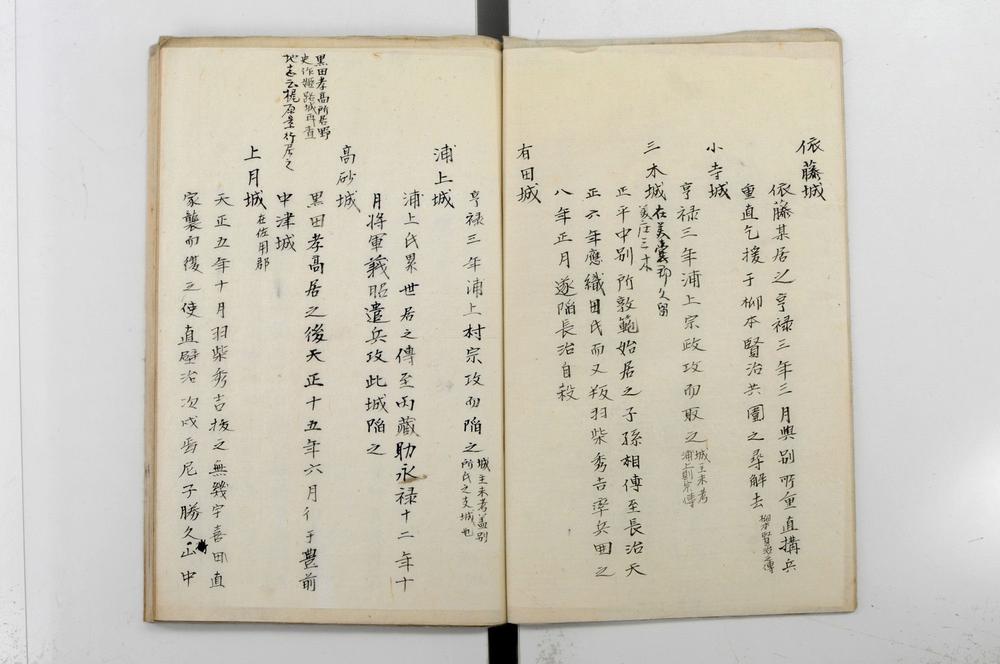 依藤城
依藤某居之亨禄三年三月與別所重直搆兵
重直乞援于柳本賢治共圍之尋解去 柳本賢治之傳
小寺城
亨禄三年浦上宗政攻而取之 城主未考
浦上則宗傳
三木城 在美嚢郡久留
美庄三木
正平中別所敦範始居之子孫相傳至長治天
正六年應織田氏而又叛羽柴秀吉率兵囲之
八年正月遂陷長治自殺
有田城
亨禄三年浦上村宗攻而陷之 城主未考蓋別
所氏之支城也
浦上城
浦上氏累世居之傳至内藏助永禄十二年十
月將軍義昭遣兵攻此城陷之
高砂城
黒田孝高所居野
史作姫路城再査
地志云梶原景行居之
黒田孝高居之後天正十五年六月イ于豊前
中津城
上月城 在佐用郡
天正五年十月羽柴秀吉抜之無幾宇喜田直
家襲而復之使直壁治次戍焉尼子勝久山中